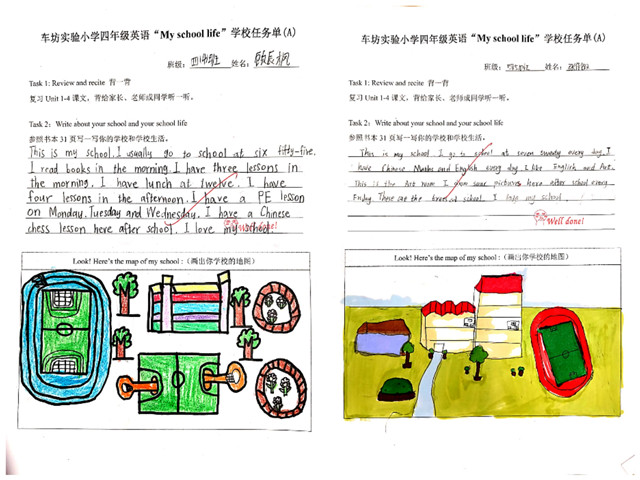 车坊实验小学四年级英语“My school life”学校任务单(A)
班级： 姓名：
Task 1: Review and recite 背一背
复习 Unit 1-4 课文，背给家长、老师或同学听一听。
Task 2: Write about your school and your school life
参照书本 31 页写一写你的学校和学校生活。
This is my school. I usually go to school at six fifty-five.
I read books in the morning. I have three lessons in
the morning. I have lunch at twelve. I have
four lessons in the afternoon. I have a PE lesson
on Monday, Tuesday and Wednesday. I have a Chinese
chess lesson here after school. I love my school.
Well done!
Look! Here's the map of my school :（画出你学校的地图）
车坊实验小学四年级英语“My school life”学校任务单(A)
班级： 姓名：
Task 1: Review and recite 背一背
复习 Unit 1-4 课文，背给家长、老师或同学听一听。
Task 2: Write about your school and your school life
参照书本 31 页写一写你的学校和学校生活。
This is my school. I go to school at seven twenty every day. I
have Chinese Maths and English every day. I like English and Art.
This is the Art room. I draw some pictures here after school every
Friday. These at the trees of school. I love my school.
Well done!
Look! Here's the map of my school :（画出你学校的地图）